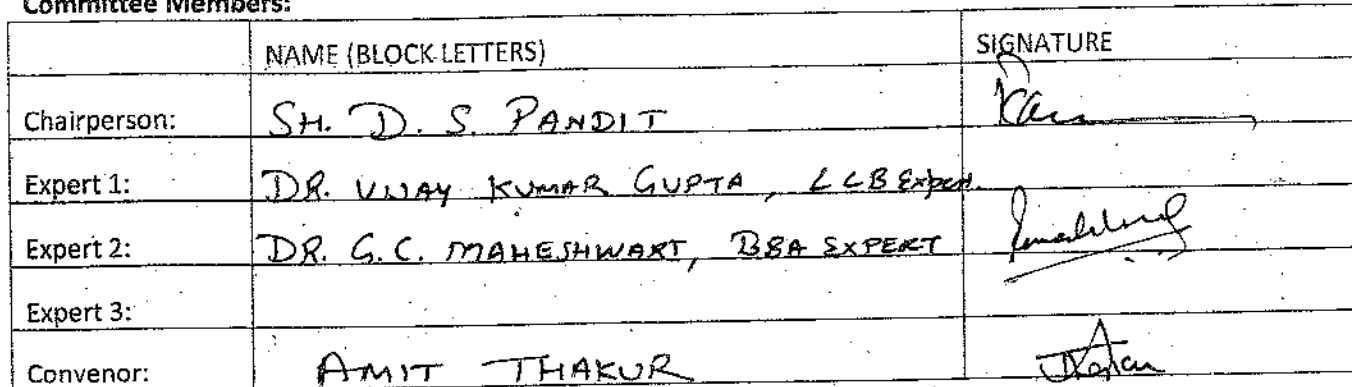 Committee Members:
NAME (BLOCK LETTERS) SIGNATURE
Chairperson: SH. D. S. PANDIT
Expert 1: DR. VIJAY KUMAR GUPTA, LLB Expert.
Expert 2: DR. G. C. MAHESHWARI, BBA EXPERT
Expert 3:
Convenor: AMIT THAKUR